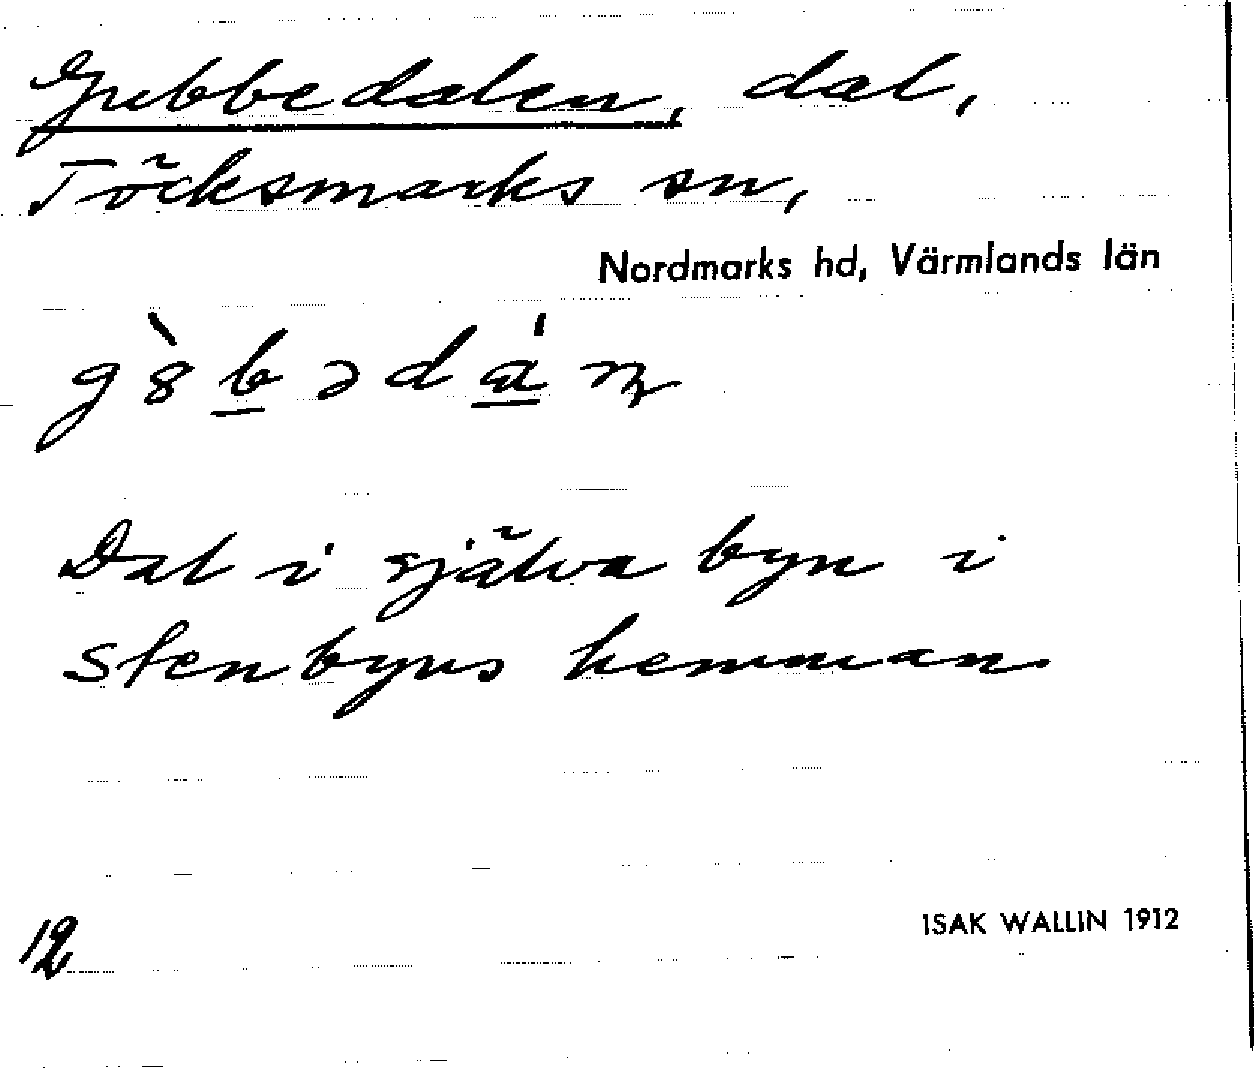 Gubbedalen, dal,
Töcksmarks sn,
Nordmarks hd, Värmlands län
Dal i själva byn i
Stenbyns hemman
12
ISAK WALLIN 1912